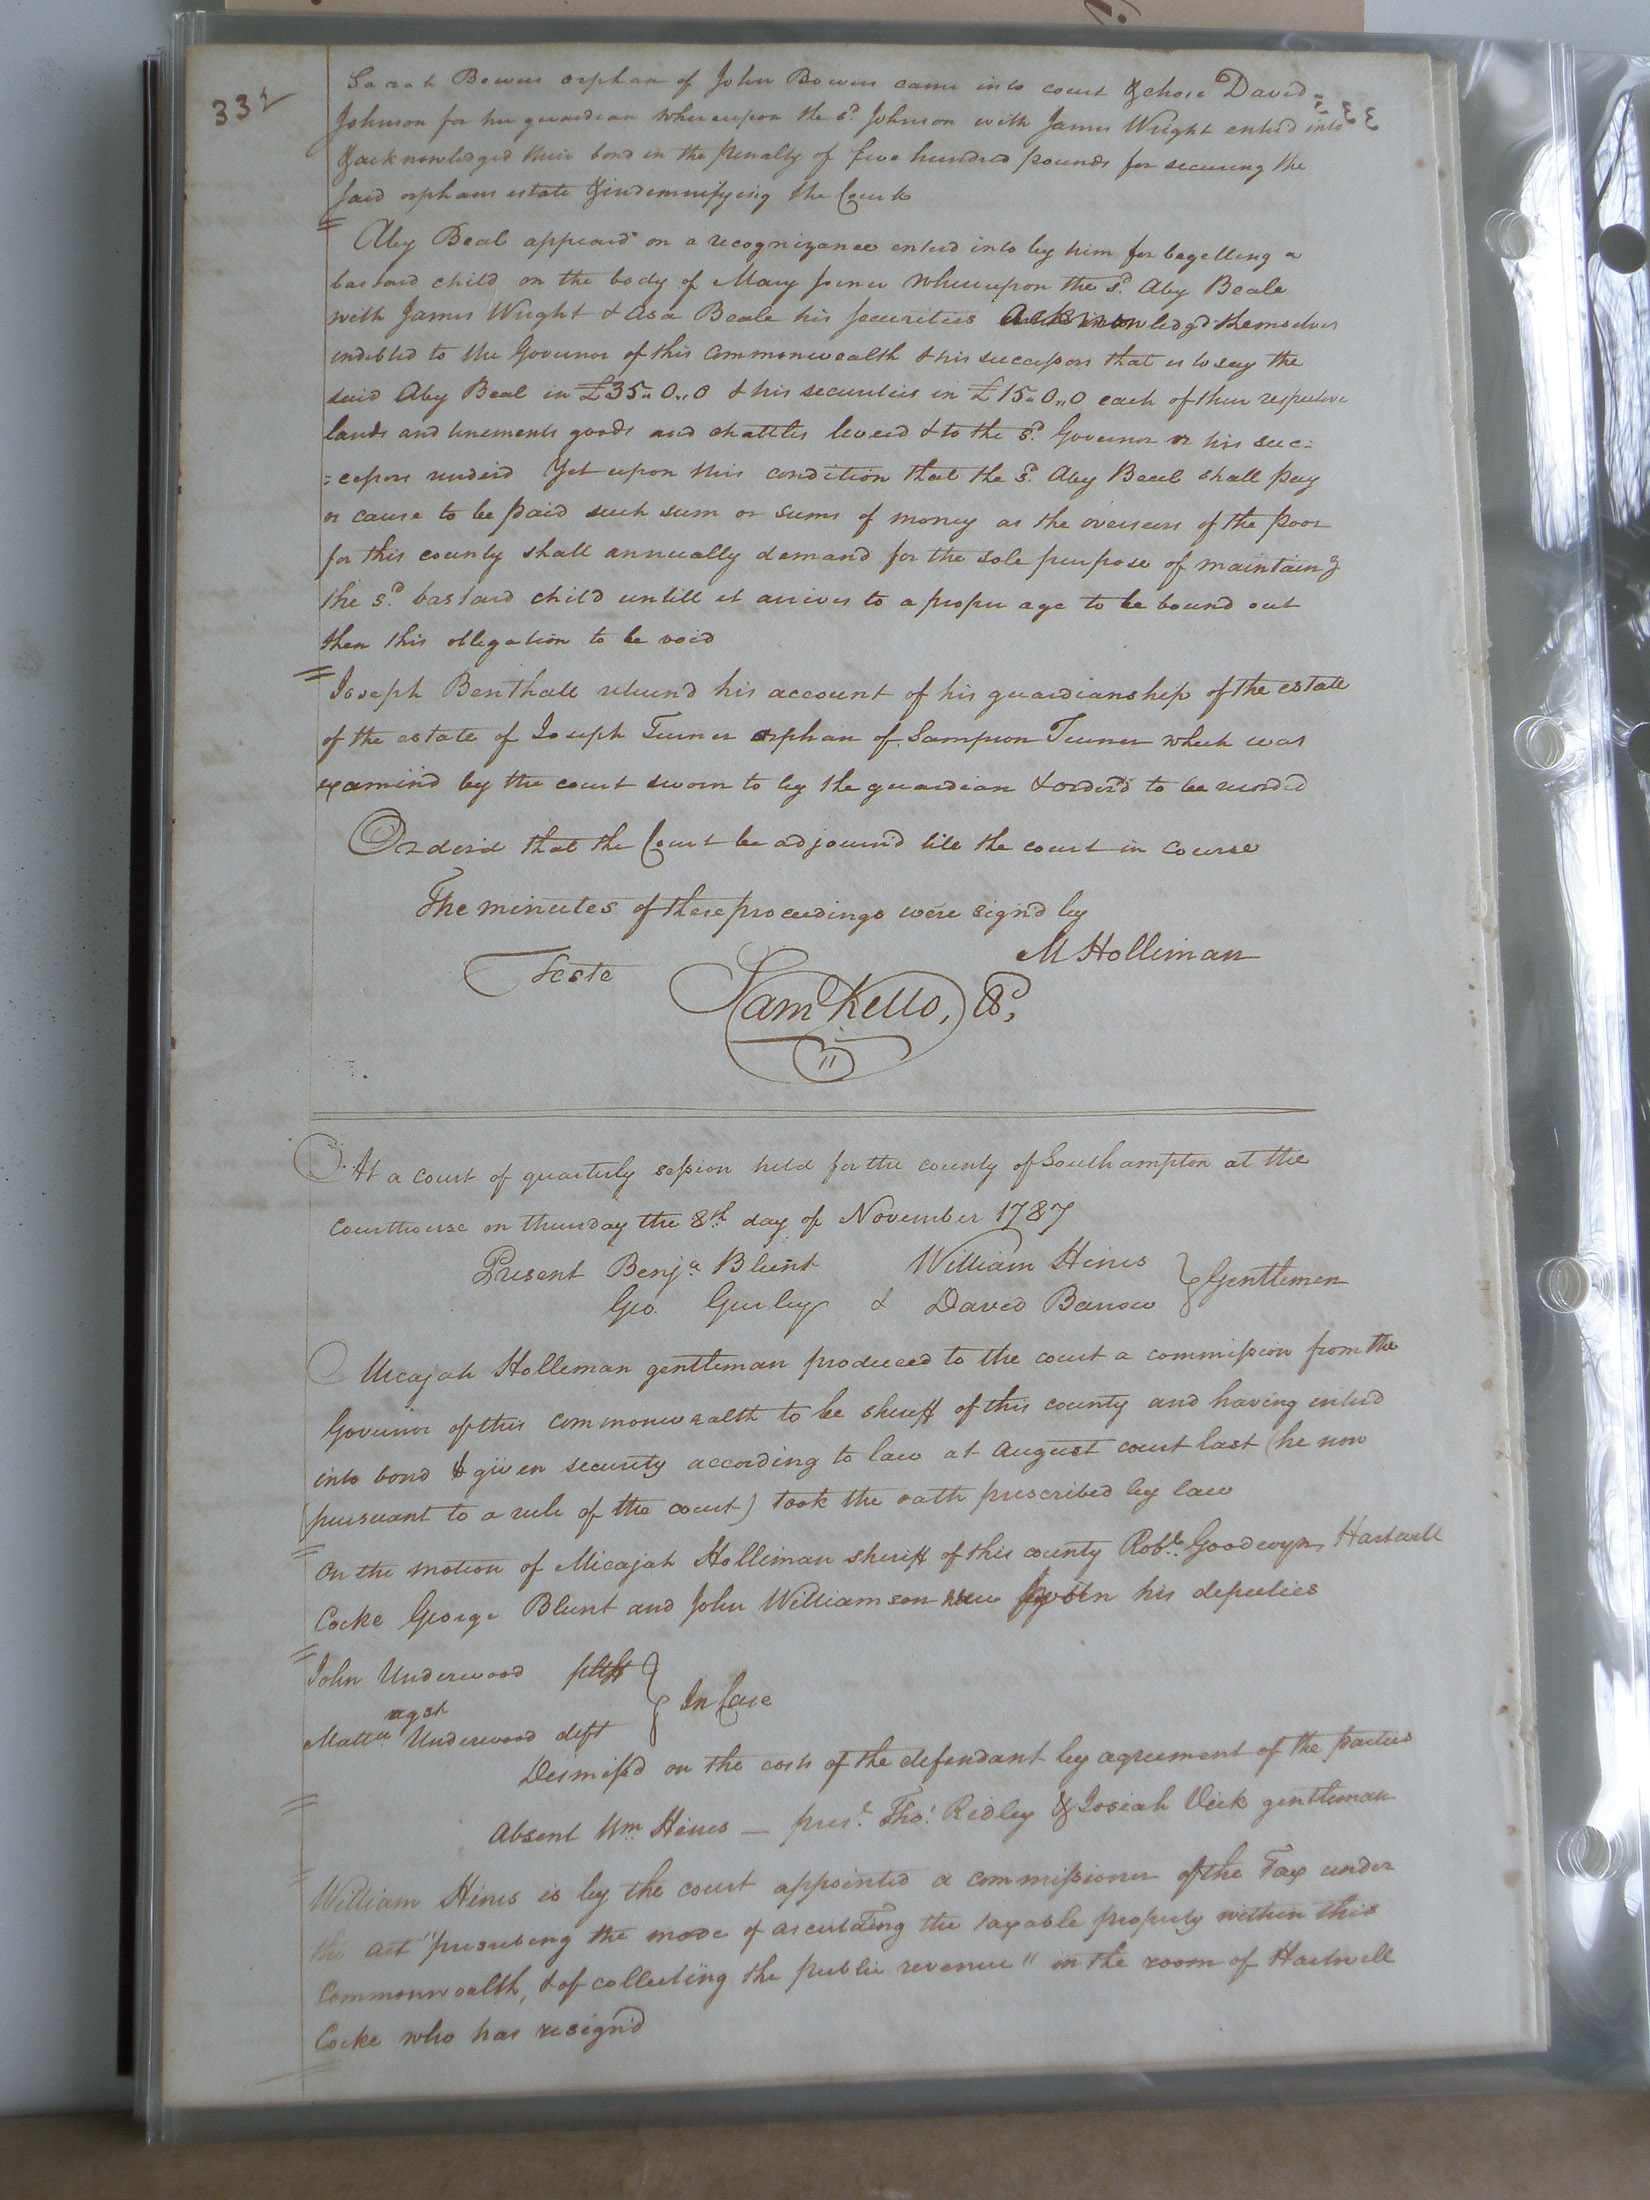 332
Sarah Bowers orphan of John Bowers came into court & chose David
Johnson for her guardian whereupon the sd. Johnson with James Wright enterd into
& acknowledged their bond in the penalty of five hundred pounds for securing the
said orphans estate & indemnifying the Court
Aby Beal appeard on a recognizance enterd into by him for begetting a
bastard child on the body of Mary whereupon the sd. Aby Beale
with James Wright & Asa Beale his securities acknowledgd themselves
indebted to the Governor of this Commonwealth & his successors that is to say the
said Aby Beal in £35..0..0 & his securities in £15..0..0 each of their respective
lands and tenements goods and chattles levied & to the sd. Governor or his suc=
=cessors renderd Yet upon this condition that the sd. Aby Beal shall pay
or cause to be paid such sum or sums of money as the overseers of the poor
for this county shall annually demand for the sole purpose of maintaing
the sd. bastard child untill it arrives to a proper age to be bound out
then this obligation to be void
Joseph Benthall returnd his account of his guardianship of the estate
of the estate of Joseph Turner orphan of Sampson Turner which was
examind by the court sworn to by the guardian & orderd to be recorded
Orderd that the Court be adjournd till the court in course
The minutes of these proceedings were signd by
M Holliman
Teste
Sam Kello, Cl,
At a court of quarterly session held for the county of Southampton at the
courthouse on thursday the 8th day of November 1787
Present Benja Blunt William Hines
Geo. Gurley & David Barrow } Gentlemen
Micajah Holleman gentleman produced to the court a commission from the
Governor of this commonwealth to be sheriff of this county and having enterd
into bond & given security according to law at August court last (he now
pursuant to a rule of the court) took the oath prescribed by law
On the motion of Micajah Holliman sheriff of this county Robt. Goodwyn Hartwell
Cocke George Blunt and John Williamson were sworn his deputies
John Underwood pltff
agst } In Case
Mattw Underwood deft
Dismissd on the costs of the defendant by agreement of the parties
Absent Wm Hines — prest. Thos. Ridley & Josiah Vick gentleman
William Hines is by the court appointed a commissioner of the Tax under
the act "prescribing the mode of ascertaing the taxable property within this
Commonwealth, & of collecting the public revenue" in the room of Hartwell
Cocke who has resignd